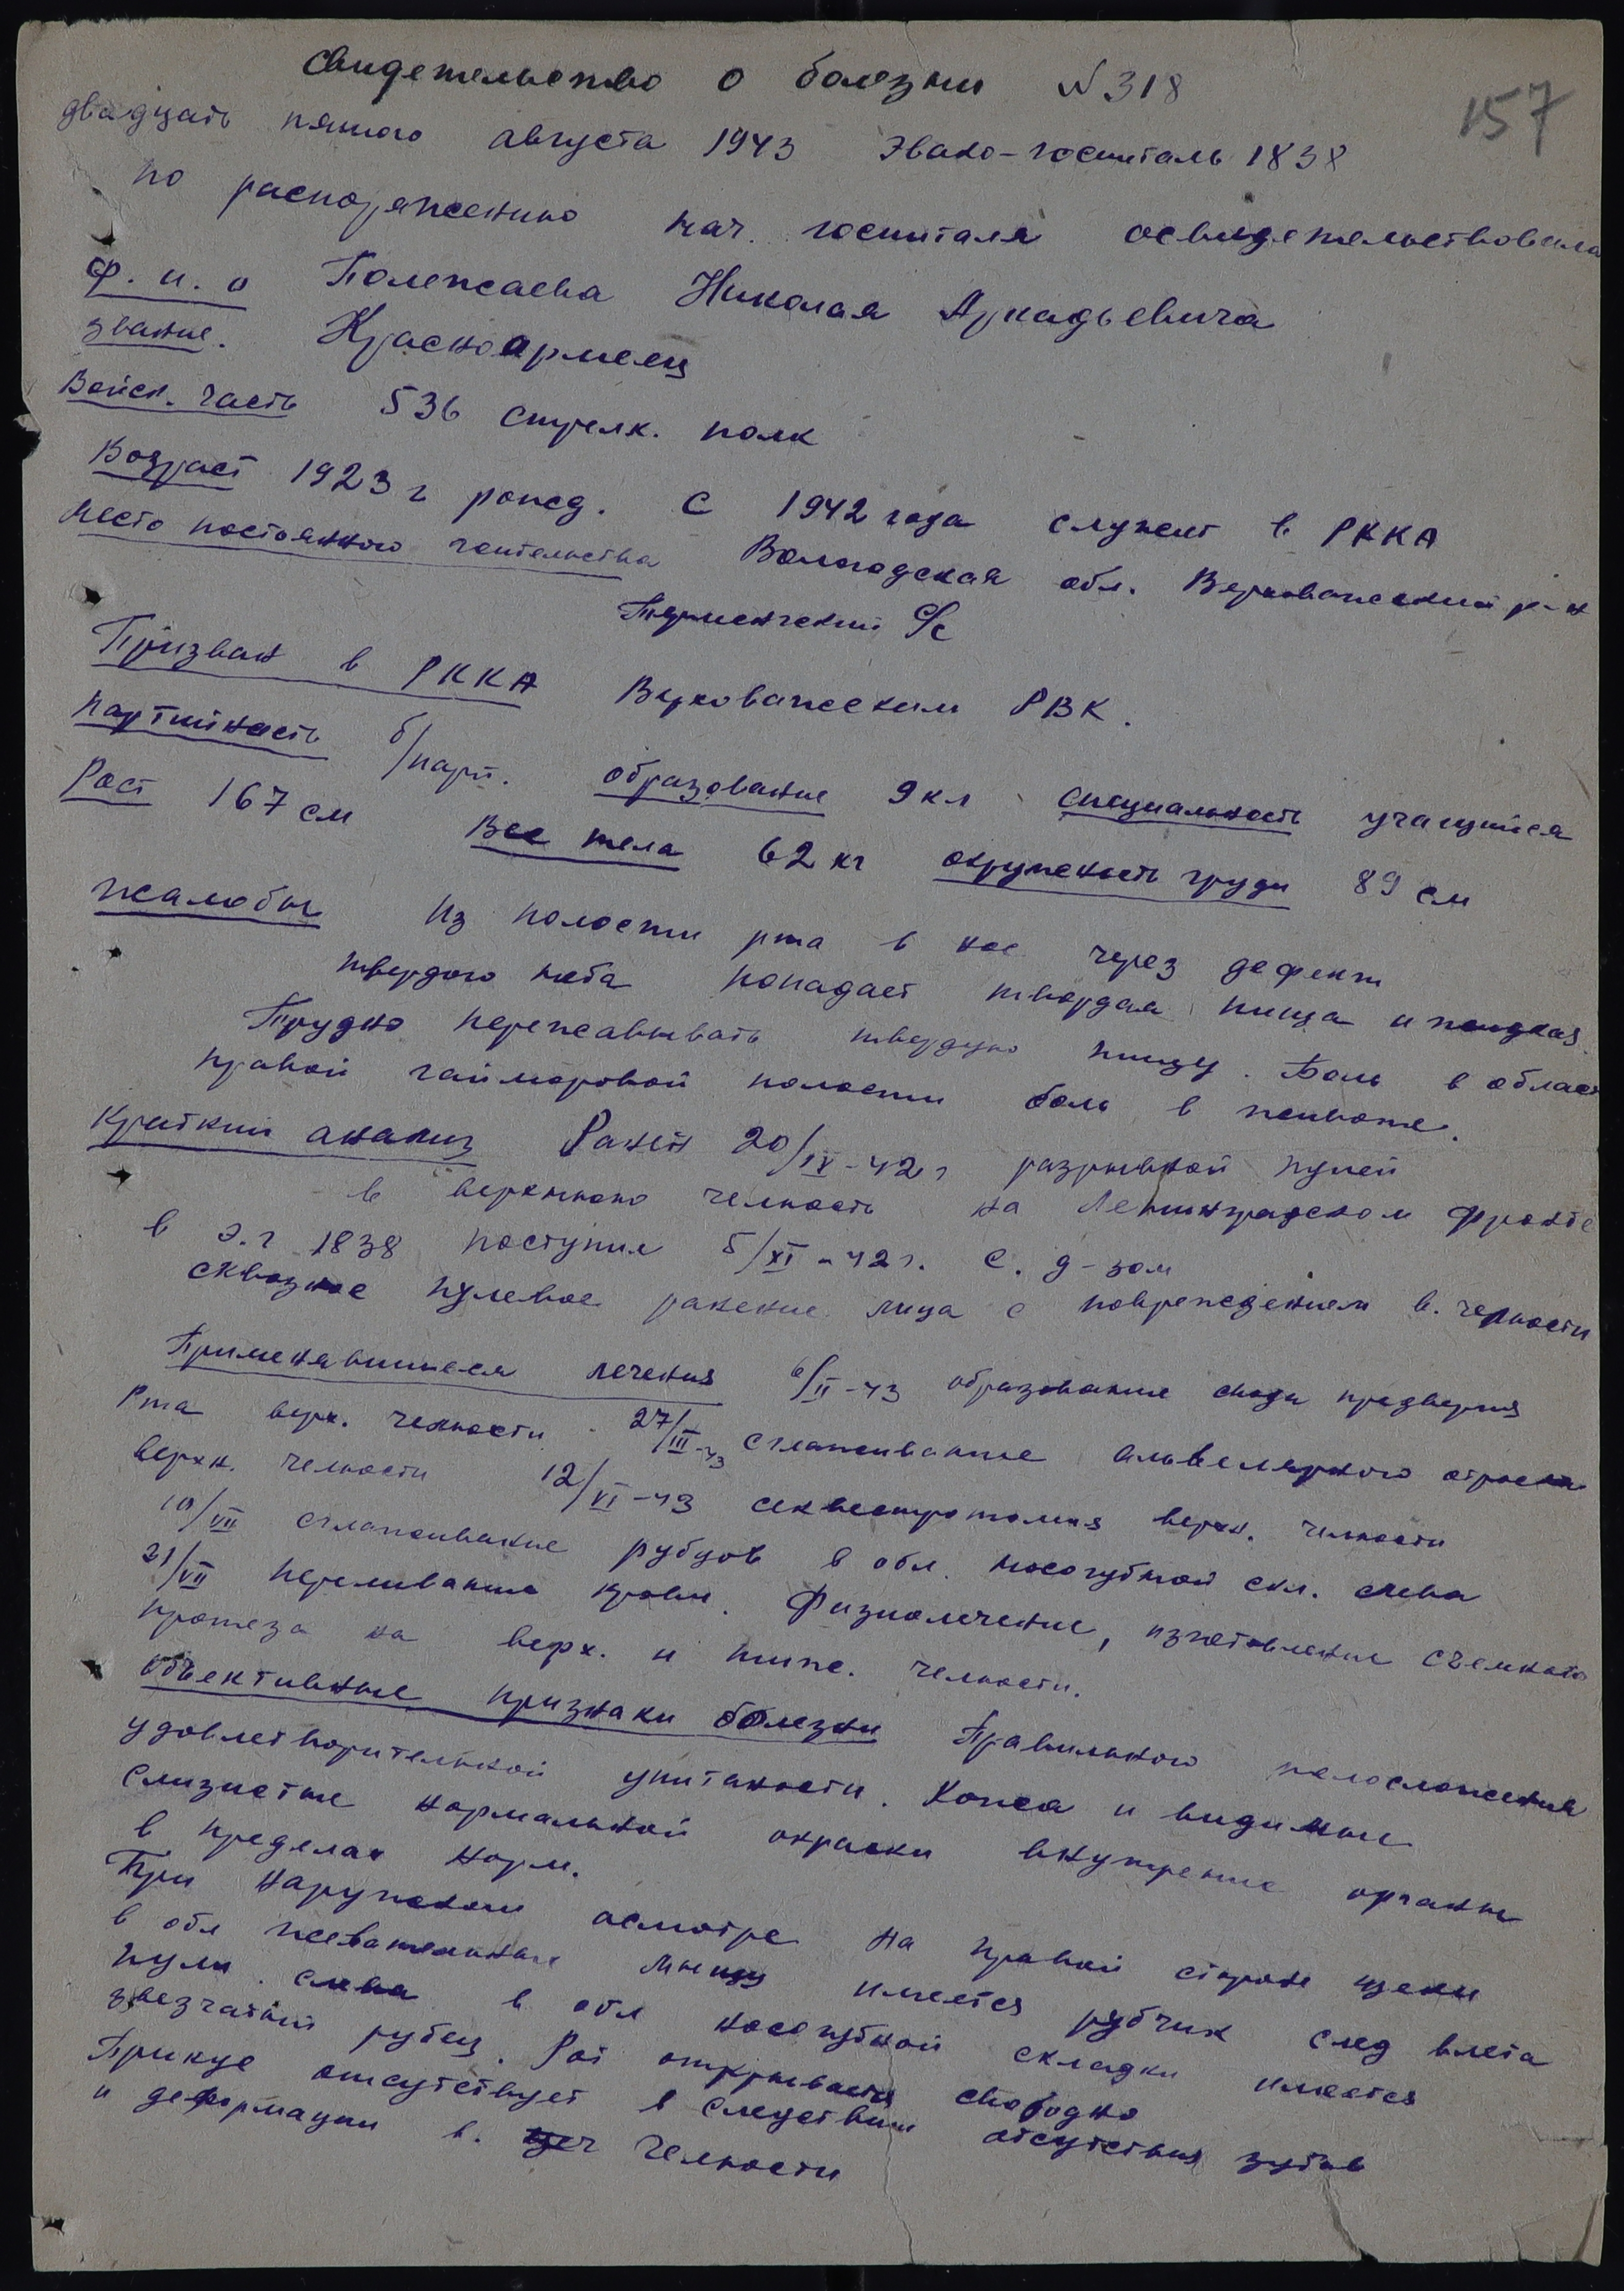 Свидетельство о болезни N 318
157
двадцать пятого августа 1943 Эвако-госпиталь 1838
по распоряжению нач. госпиталя освидетельствовала
Ф. и. о Полежаева Николая Аркадьевича
звание. Красноармеец
Войск. часть 536 стрелк. полк
Возраст 1923 г рожд. С 1942 года служит в РККА
Место постоянного жительства Вологодская обл. Верховажский р-н
Терменгский С/с
Призван в РККА Верховажским РВК.
Партийность б/парт. образование 9 кл специальность учащийся
Рост 167 см Вес тела 62 кг окружность груди 89 см
Жалобы Из полости рта в нос через дефект
твердого неба попадает твердая пища и жидкая.
Трудно пережавывать твердую пищу. Боль в област
правой гайморовой полости боль в животе.
Краткий анамиз Ранен 20/IX-42 г разрывной пулей
в верхнюю челюсть на Ленинградском фронте
в э.г 1838 поступил 5/XI-42 г. с. д-зом
сквозное пулевое ранение лица с повреждением в. челюсти
Применявшиеся лечения 6/II-43 образование свода предверия
Рта верх. челюсти. 27/III-43 сглаживание альвелярного отростка
верхн. челюсти 12/VI-43 секвестротомия верхн. челюсти
10/VII сглаживание рубцов в обл. носогубной скл. слева
21/VII переливание крови. Физиолечение, изготовление съемного
протеза на верх. и ниж. челюсти.
Объективные признаки болезни Правильного телосложения
удовлетворительной упитаности. Кожа и видимые
слизистые нормальной окраски внутрение органы
в пределах норм.
При наружном осмотре на правой стороне щеки
в обл жевательные мышцы имеется рубчик след влета
пули. слева в обл носогубной складки имеется
звезчатый рубец. Рот открывается свободно
Прикус отсутствует в следствии отсутствия зубов
и деформации в. челюсти